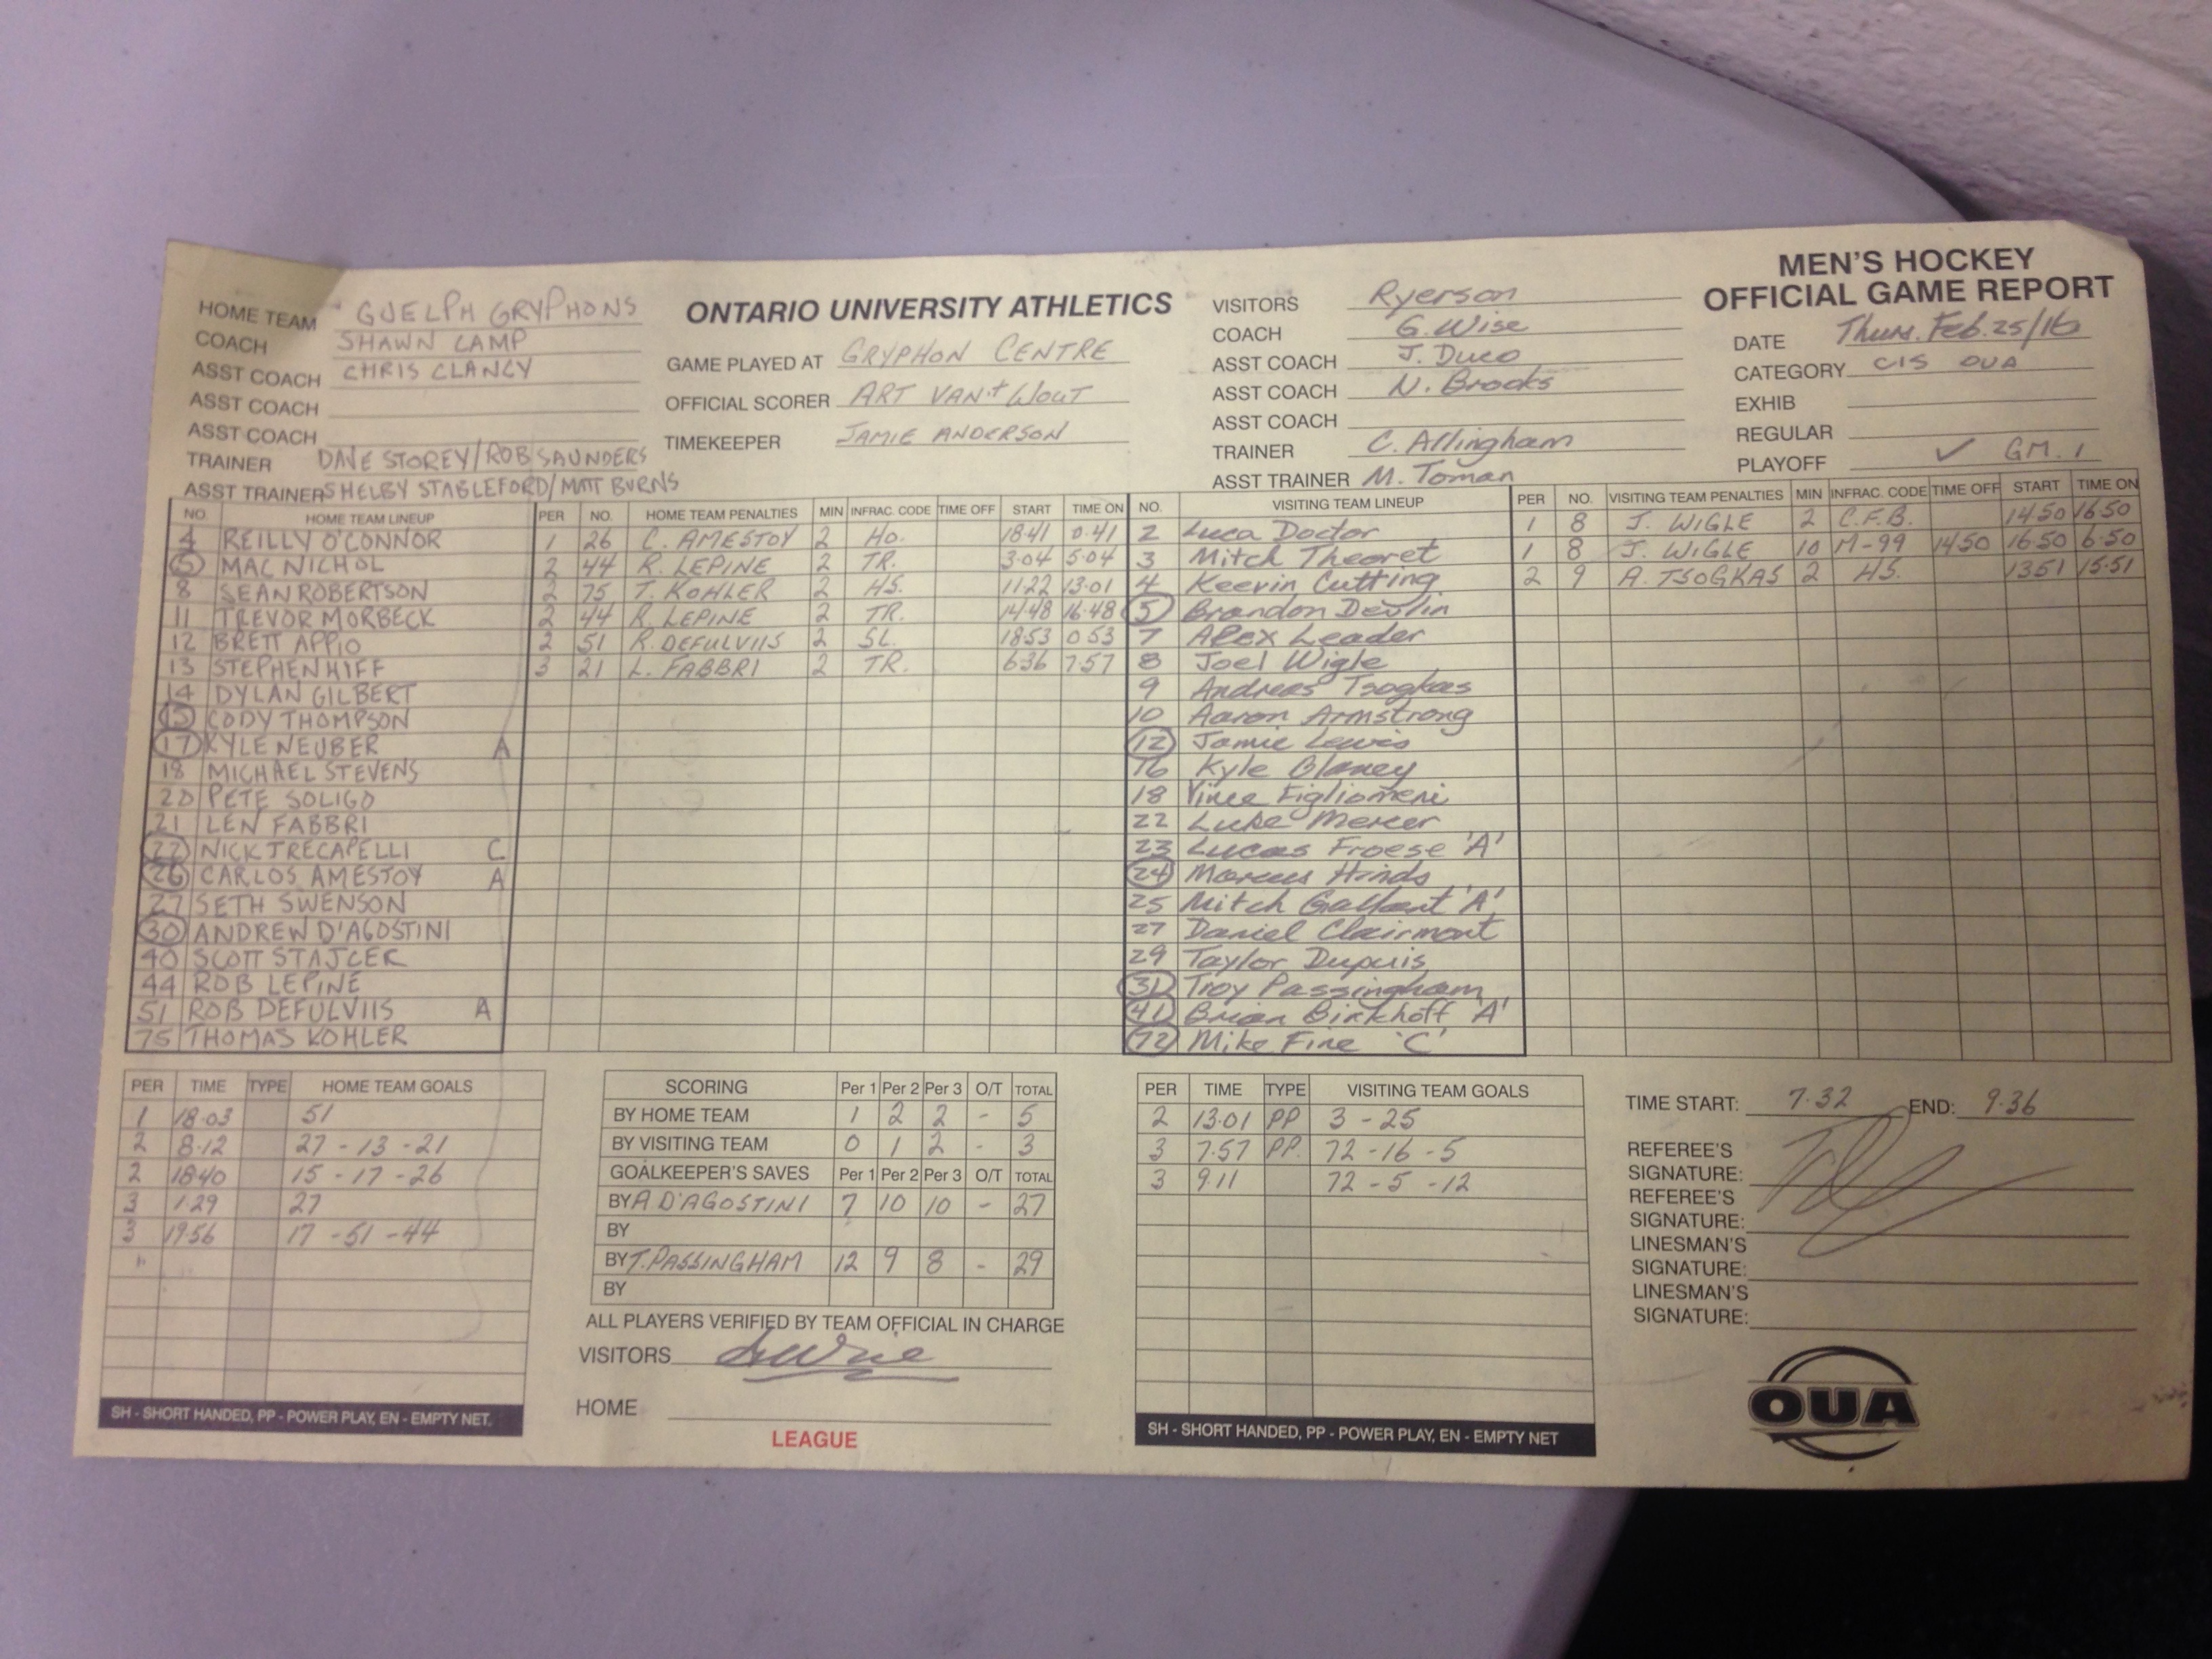 ONTARIO UNIVERSITY ATHLETICS
MEN'S HOCKEY
OFFICIAL GAME REPORT
HOME TEAM GUELPH GRYPHONS
COACH SHAWN CAMP
ASST COACH CHRIS CLANCY
ASST COACH
ASST COACH
TRAINER DAVE STOREY/ROB SAUNDERS
ASST TRAINER SHELBY STABLEFORD/MATT BURNS
GAME PLAYED AT GRYPHON CENTRE
OFFICIAL SCORER ART VAN'T WOUT
TIMEKEEPER JAMIE ANDERSON
VISITORS Ryerson
COACH G. Wise
ASST COACH J. Duco
ASST COACH N. Brooks
ASST COACH
TRAINER C. Allingham
ASST TRAINER M. Toman
DATE Thurs. Feb. 25/16
CATEGORY CIS OUA
EXHIB
REGULAR
PLAYOFF ✓ GM. 1
NO. HOME TEAM LINEUP
4 REILLY O'CONNOR
5 MAC NICHOL
8 SEAN ROBERTSON
11 TREVOR MORBECK
12 BRETT APPIO
13 STEPHEN HIFF
14 DYLAN GILBERT
15 CODY THOMPSON
17 KYLE NEUBER A
18 MICHAEL STEVENS
20 PETE SOLIGO
21 LEN FABBRI
22 NICK TRECAPELLI C
26 CARLOS AMESTOY A
27 SETH SWENSON
30 ANDREW D'AGOSTINI
40 SCOTT STAJCER
44 ROB LEPINE
51 ROB DEFULVIIS A
75 THOMAS KOHLER
PER NO. HOME TEAM PENALTIES MIN INFRAC. CODE TIME OFF START TIME ON
1 26 C. AMESTOY 2 HO. 18·41 0·41
2 44 R. LEPINE 2 TR. 3·04 5·04
2 75 T. KOHLER 2 HS. 11·22 13·01
2 44 R. LEPINE 2 TR. 14·48 16·48
2 51 R. DEFULVIIS 2 SL. 18·53 0·53
3 21 L. FABBRI 2 TR. 6·36 7·57
NO. VISITING TEAM LINEUP
2 Luca Doctor
3 Mitch Theoret
4 Keevin Cutting
5 Brandon Devlin
7 Alex Leader
8 Joel Wigle
9 Andreas Tsogkas
10 Aaron Armstrong
12 Jamie Lewis
16 Kyle Blaney
18 Vince Figliomeni
22 Luke Mercer
23 Lucas Froese 'A'
24 Marcus Hinds
25 Mitch Gallant 'A'
27 Daniel Clairmont
29 Taylor Dupuis
31 Troy Passingham
41 Brian Birkhoff 'A'
72 Mike Fine 'C'
PER NO. VISITING TEAM PENALTIES MIN INFRAC. CODE TIME OFF START TIME ON
1 8 J. WIGLE 2 C.F.B. 14·50 16·50
1 8 J. WIGLE 10 M-99 14·50 16·50 6·50
2 9 A. TSOGKAS 2 HS. 13·51 15·51
PER TIME TYPE HOME TEAM GOALS
1 18·03 51
2 8·12 27 - 13 - 21
2 18·40 15 - 17 - 26
3 1·29 27
3 19·56 17 - 51 - 44
SH - SHORT HANDED, PP - POWER PLAY, EN - EMPTY NET.
SCORING Per 1 Per 2 Per 3 O/T TOTAL
BY HOME TEAM 1 2 2 - 5
BY VISITING TEAM 0 1 2 - 3
GOALKEEPER'S SAVES Per 1 Per 2 Per 3 O/T TOTAL
BY A D'AGOSTINI 7 10 10 - 27
BY
BY T. PASSINGHAM 12 9 8 - 29
BY
ALL PLAYERS VERIFIED BY TEAM OFFICIAL IN CHARGE
VISITORS
HOME
LEAGUE
PER TIME TYPE VISITING TEAM GOALS
2 13·01 PP 3 - 25
3 7·57 PP. 72 - 16 - 5
3 9·11 72 - 5 - 12
SH - SHORT HANDED, PP - POWER PLAY, EN - EMPTY NET
TIME START: 7·32 END: 9·36
REFEREE'S
SIGNATURE:
REFEREE'S
SIGNATURE:
LINESMAN'S
SIGNATURE:
LINESMAN'S
SIGNATURE:
OUA